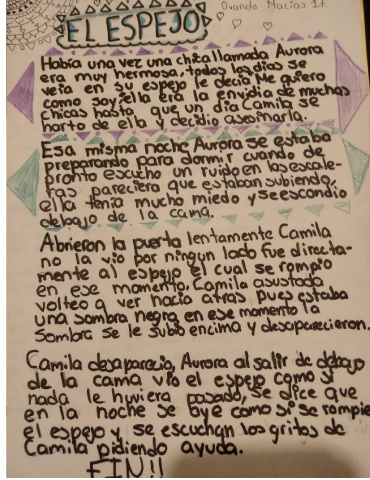 Ovando Macias 17.
EL ESPEJO
Había una vez una chica llamada Aurora
era muy hermosa, todos los dias se
veia en su espejo le decia Me quiero
como soy, ella era la envidia de muchas
chicas hasta que un dia Camila se
harto de ella y decidio asesinarla.
Esa misma noche Aurora se estaba
preparando para dormir cuando de
pronto escucho un ruido en las escale-
ras pareciera que estaban subiendo,
ella tenia mucho miedo y se escondio
debajo de la cama.
Abrieron la puerta lentamente Camila
no la vio por ningun lado fue directa-
mente al espejo el cual se rompio
en ese momento, Camila asustada
volteo a ver hacia atras pues estaba
una sombra negra, en ese momento la
Sombra se le subio encima y desaparecieron.
Camila desaparecio, Aurora al salir de debajo
de la cama vio el espejo como si
nada le huviera pasado, se dice que
en la noche se oye como si se rompie
el espejo y se escuchan los gritos de
Camila pidiendo ayuda.
FIN!!